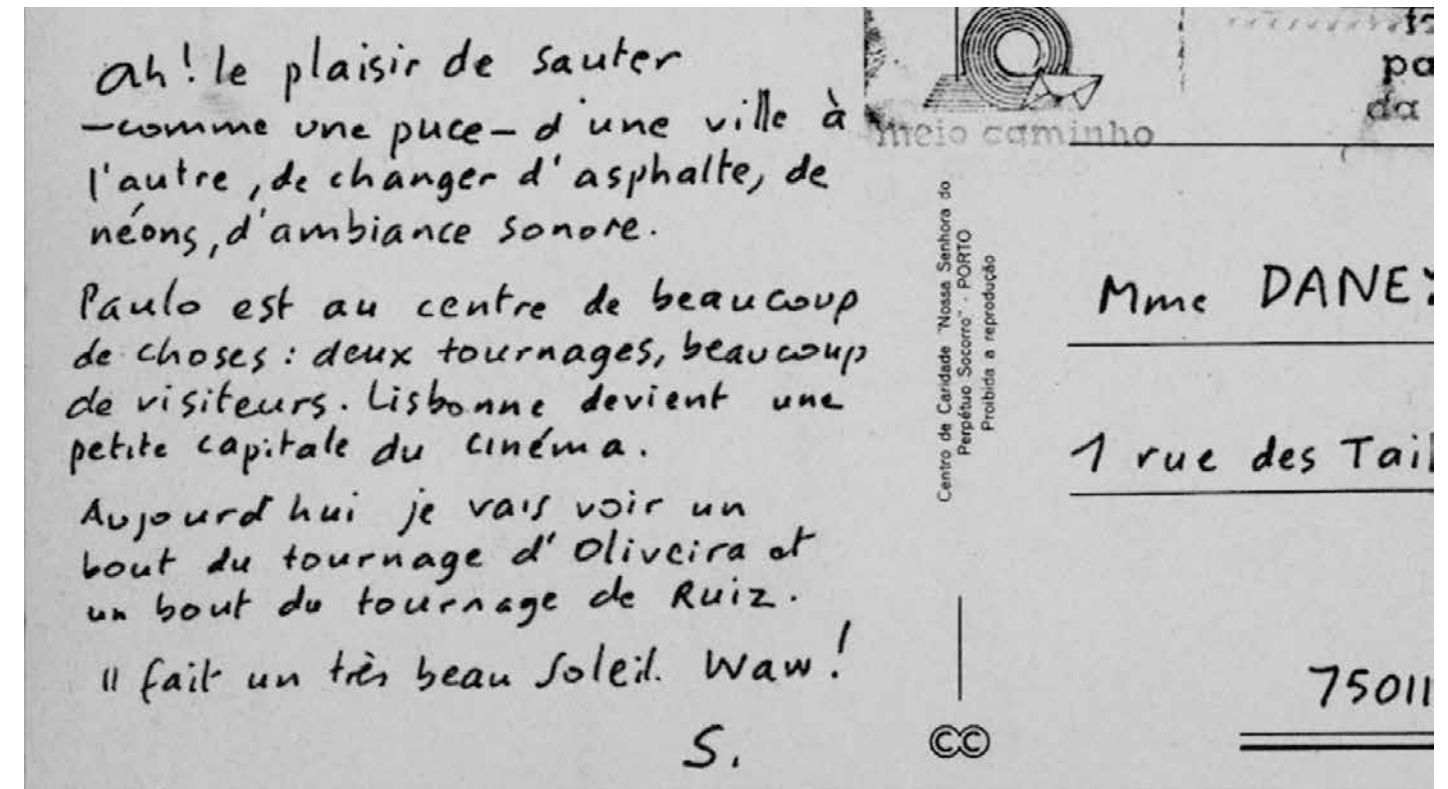 ah! le plaisir de sauter
—comme une puce— d'une ville à
l'autre, de changer d'asphalte, de
néons, d'ambiance sonore.
Paulo est au centre de beaucoup
de choses : deux tournages, beaucoup
de visiteurs. Lisbonne devient une
petite capitale du cinéma.
Aujourd'hui je vais voir un
bout du tournage d'Oliveira et
un bout du tournage de Ruiz.
Il fait un très beau soleil. Waw!
S.
meio caminho
pa
da
Centro de Caridade "Nossa Senhora do
Perpétuo Socorro" - PORTO
Proibida a reprodução
Mme DANEY
1 rue des Tail
75011
CC